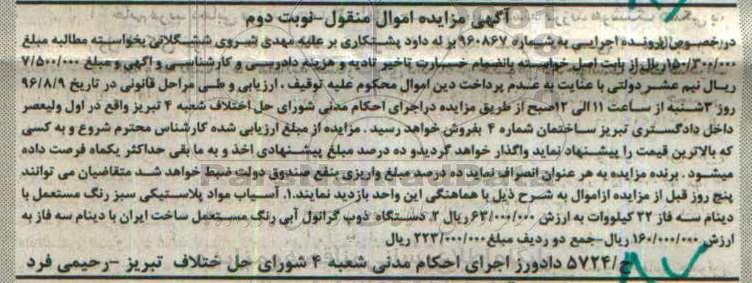 آگهی مزایده اموال منقول-نوبت دوم
درخصوص پرونده اجرایی به شماره ۹۶۰۸۶۷ بر له داود پشتکاری بر علیه مهدی شروی ششگلانی بخواسته مطالبه مبلغ
۱۵۰/۳۰۰/۰۰۰ریال از بابت اصل خواسته بانضمام خسارت تاخیر تادیه و هزینه دادرسی و کارشناسی و آگهی و مبلغ ۷/۵۰۰/۰۰۰
ریال نیم عشر دولتی با عنایت به عدم پرداخت دین اموال محکوم علیه توقیف ، ارزیابی و طی مراحل قانونی در تاریخ ۹۶/۸/۹
روز ۳شنبه از ساعت ۱۱الی ۱۲صبح از طریق مزایده دراجرای احکام مدنی شورای حل اختلاف شعبه ۴ تبریز واقع در اول ولیعصر
داخل دادگستری تبریز ساختمان شماره ۴ بفروش خواهد رسید . مزایده از مبلغ ارزیابی شده کارشناس محترم شروع و به کسی
که بالاترین قیمت را پیشنهاد نماید واگذار خواهد گردیدو ده درصد مبلغ پیشنهادی اخذ و به ما بقی حداکثر یکماه فرصت داده
میشود . برنده مزایده به هر عنوان انصراف نماید ده درصد مبلغ واریزی بنفع صندوق دولت ضبط خواهد شد متقاضیان می توانند
پنج روز قبل از مزایده ازاموال به شرح ذیل با هماهنگی این واحد بازدید نمایند.۱. آسیاب مواد پلاستیکی سبز رنگ مستعمل با
دینام سه فاز ۲۲ کیلووات به ارزش ۶۳/۰۰۰/۰۰۰ریال ۲. دستگاه ذوب گرانول آبی رنگ مستعمل ساخت ایران با دینام سه فاز به
ارزش ۱۶۰/۰۰۰/۰۰۰ ریال-جمع دو ردیف مبلغ ۲۲۳/۰۰۰/۰۰۰ ریال
ح/۵۷۲۴ دادورز اجرای احکام مدنی شعبه ۴ شورای حل اختلاف تبریز -رحیمی فرد